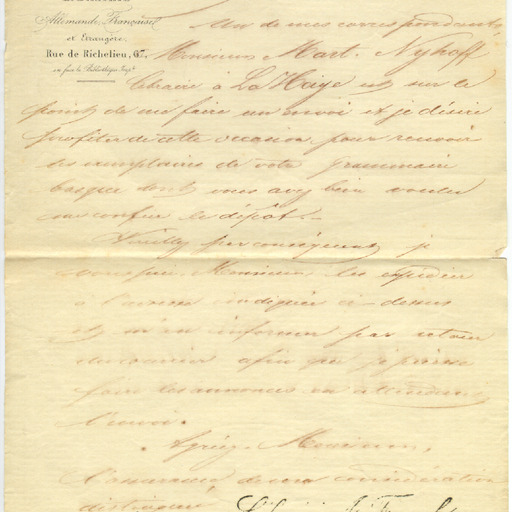 Allemande, Française
et Etrangère
Rue de Richelieu, 67.
en face la Bibliothèque Imple
Un de mes correspondants,
Monsieur Mart. Nyhoff
libraire à La Haye est sur le
point de me faire un envoi et je désire
profiter de cette occasion pour recevoir
les exemplaires de votre grammaire
basque dont vous avez bien voulu
me confier le dépôt.
Veuillez par conséquent, je
vous prie, Monsieur les expédier
à l'adresse indiquée ci-dessus
et m'en informer par retour
du courrier afin que je puisse
faire les annonces en attendant
l'envoi.
Agréez, Monsieur,
l'assurance de ma considération
distinguée